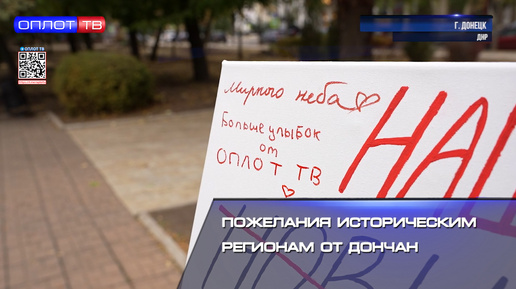 ОПЛОТ ТВ
ОПЛОТ ТВ
Г. ДОНЕЦК
ДНР
Мирного неба
Больше улыбок
от
ОПЛОТ ТВ
ПОЖЕЛАНИЯ ИСТОРИЧЕСКИМ
РЕГИОНАМ ОТ ДОНЧАН